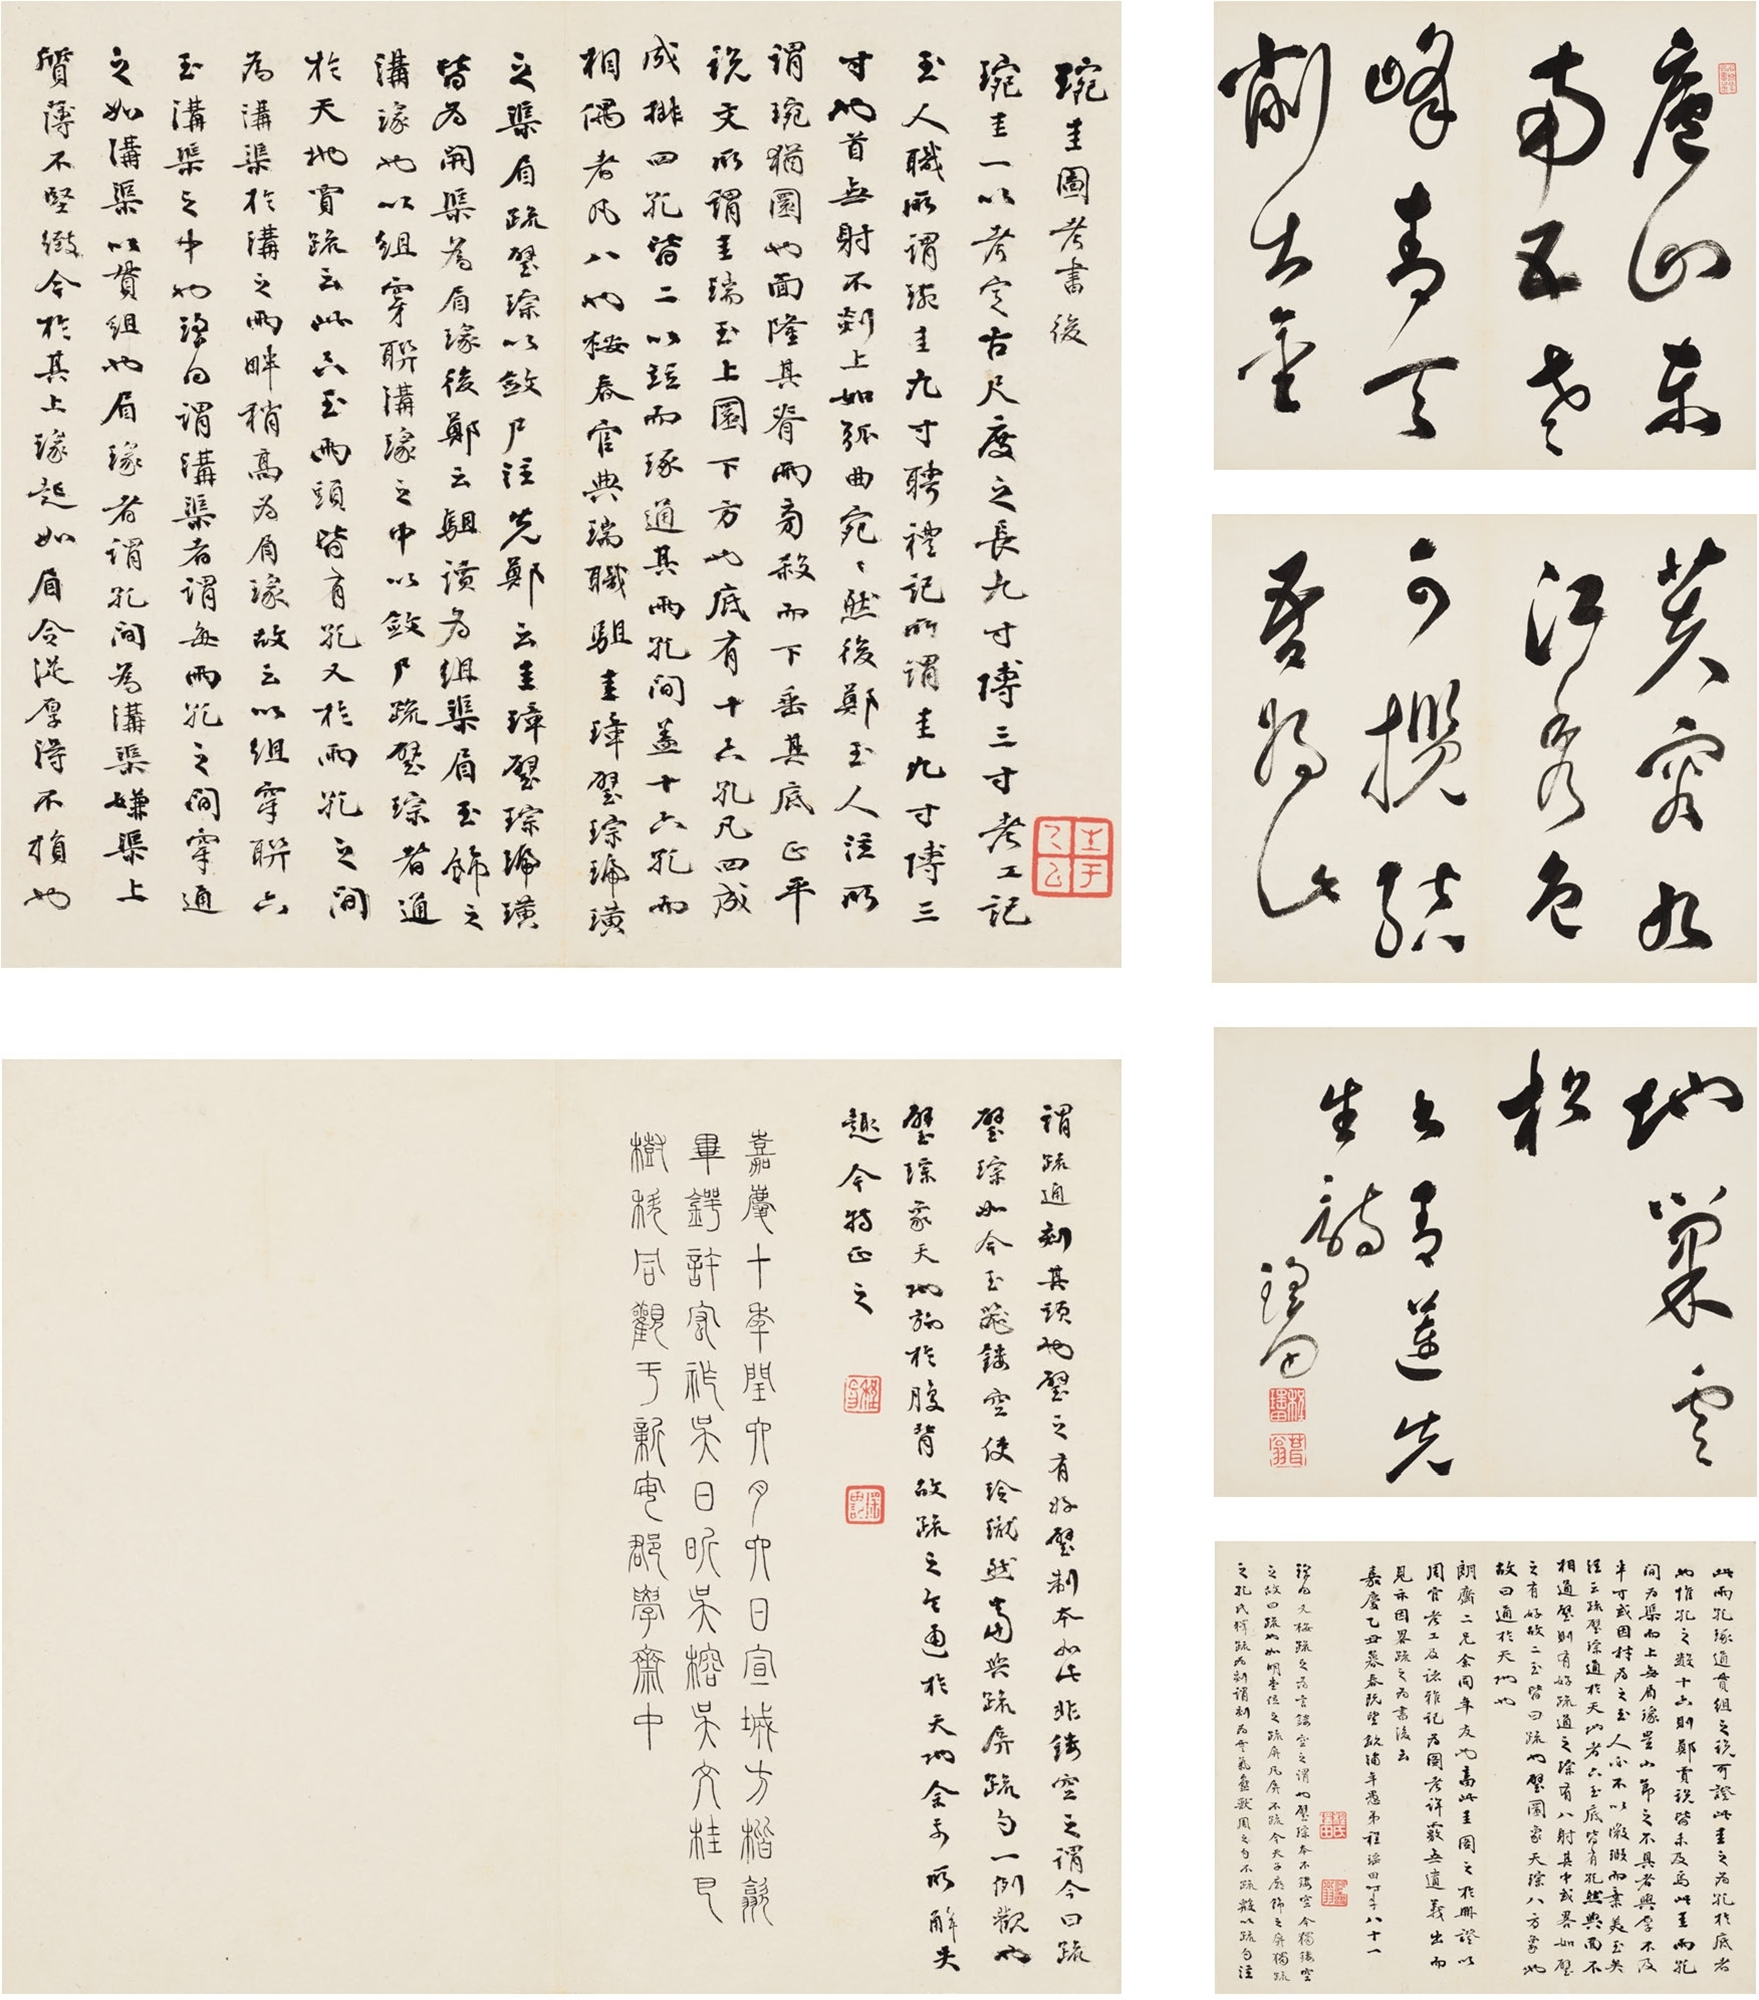 廬山東
南五老
峰青天
削出金
芙蓉九
江秀色
可攬結
吾將此
地巢雲
松
右青蓮先
生詩 瑤田
琬圭圖考書後
琬圭一以考定古尺度之長九寸博三寸考工記
玉人職所謂琬圭九寸聘禮記所謂圭九寸博三
寸也首無射不剡上如弧曲宛〻然後鄭玉人注所
謂琬猶圜也面隆其脊兩旁殺而下垂其底正平
說文所謂圭瑞玉上圜下方也底有十六孔凡四成
成排四孔皆二以組而琢通其兩孔間蓋十六孔而
相偶者凡八也桉春官典瑞職駔圭璋璧琮琥璜
之渠眉疏璧琮以斂尸注先鄭云圭璋璧琮琥璜
皆為開渠為眉瑑後鄭云駔讀為組渠眉玉飾之
溝瑑也以組穿聯溝瑑之中以斂尸疏璧琮者通
於天地賈疏云此六玉兩頭皆有孔又於兩孔之間
為溝渠於溝之兩畔稍高為眉瑑故云以組穿聯六
玉溝渠之中也瑤田謂溝渠者謂每兩孔之間穿通
之如溝渠以貫組也眉瑑者謂孔間為溝渠嫌渠上
質薄不堅緻令於其上瑑起如眉令從厚得不損也
此兩孔琢通貫組之說可證此圭之為孔於底者
也惟孔之數十六則鄭賈說皆未及焉此圭兩孔
間為渠而上無眉瑑豈山節之不具者與厚不及
半寸或因材為之玉人亦不以微瑕而棄美玉矣
注云疏璧琮通於天地者六玉底皆有孔然與面不
相通璧則有好疏通之琮有八射其中或畧如璧
之有好故二玉皆曰疏也璧圜象天琮八方象地
故曰通於天地也
朗齋二兄余同年友也高此圭圖之於冊證以
周官考工及諸雜記為圖考詳覈無遺義出而
見示因畧疏之為書後云
嘉慶乙丑暮春既望歙浦年愚弟程瑤田時年八十一
瑤田又桉疏之為言鏤空之謂也璧琮本不鏤空今獨鏤空
之故曰疏也如明堂位之疏屏凡屏不疏今天子廟飾之屏獨疏
之孔氏釋疏為刻謂刻為雲氣蟲獸周之勺不疏故以疏勺注
謂疏通刻其頭也璧之有好璧制本如此非鏤空之謂今曰疏
璧琮如今玉器鏤空使玲瓏然當與疏屏疏勺一例觀也
璧琮象天地施於腹背故疏之令通於天地余前所解失
趣今特正之
嘉慶十年閏六月六日宣城方楷歙
畢鍔許宏祚吳日昕吳榕吳文桂巴
樹同觀于新安郡學齋中